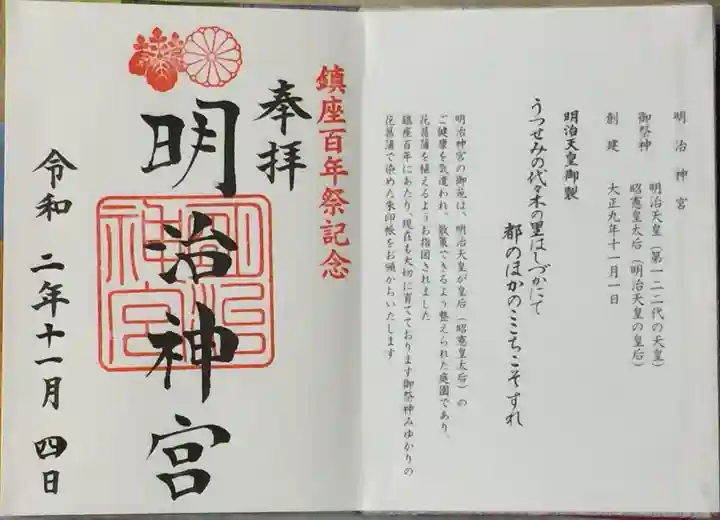 明治神宮
御祭神　明治天皇（第一二二代の天皇）
昭憲皇太后（明治天皇の皇后）
創建　大正九年十一月一日
明治天皇御製
うつせみの代々木の里はしづかにて
都のほかのこゝちこそすれ
明治神宮の御苑は、明治天皇が皇后（昭憲皇太后）の
ご健康を気遣われ、散策できるよう整えられた庭園であり、
花菖蒲を植えるようお指図されました
鎮座百年にあたり、現在も大切に育てております御祭神みゆかりの
花菖蒲で染めた朱印帳をお頒かちいたします
鎮座百年祭記念
奉拝
明治神宮
明治
神宮
令和 二年十一月 四日